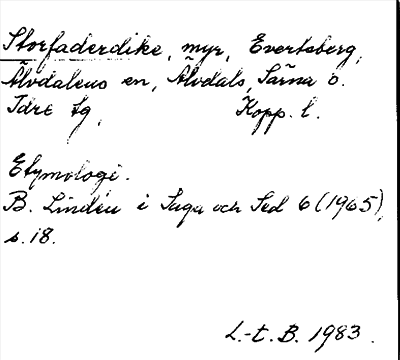 Storfaderdike, myr, Evertsberg,
Älvdalens sn, Älvdals, Särna o.
Idre tg, Kopp. l.
Etymologi.
B. Lindén i Saga och Sed 6 (1965),
s. 18.
L.-t. B. 1983.